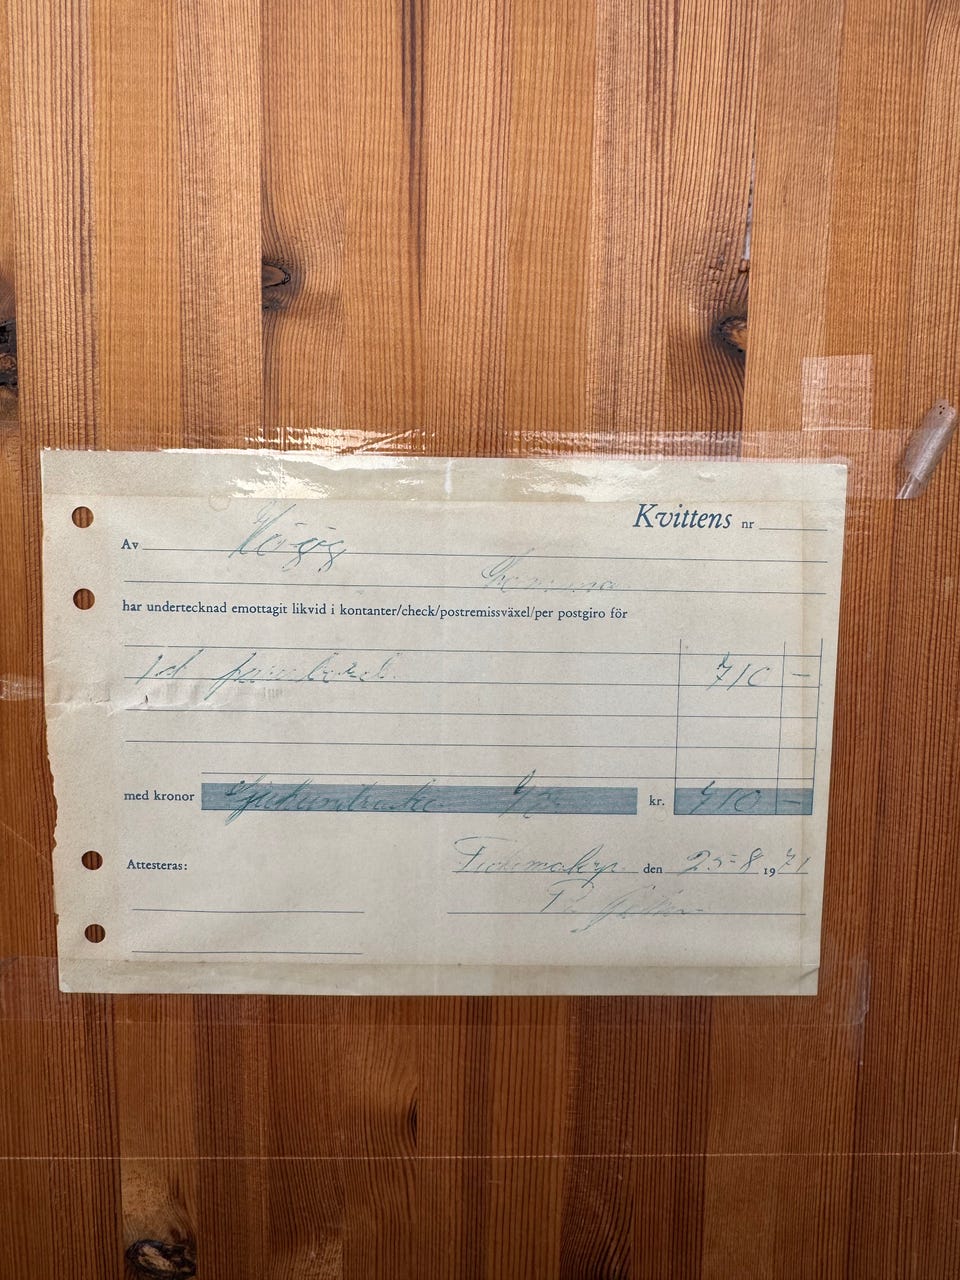 Kvittens nr
Av Höigig
har undertecknad emottagit likvid i kontanter/check/postremissväxel/per postgiro för
1 st furubord. 710 –
med kronor Sjuhundratio kr. 710 –
Attesteras: den 25-8 1971